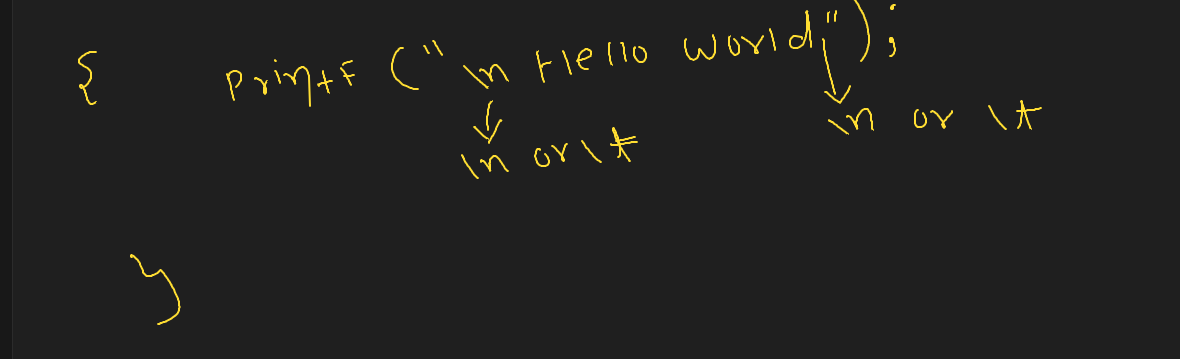 { printf ("\n Hello world");
\n or \t
\n or \t
}